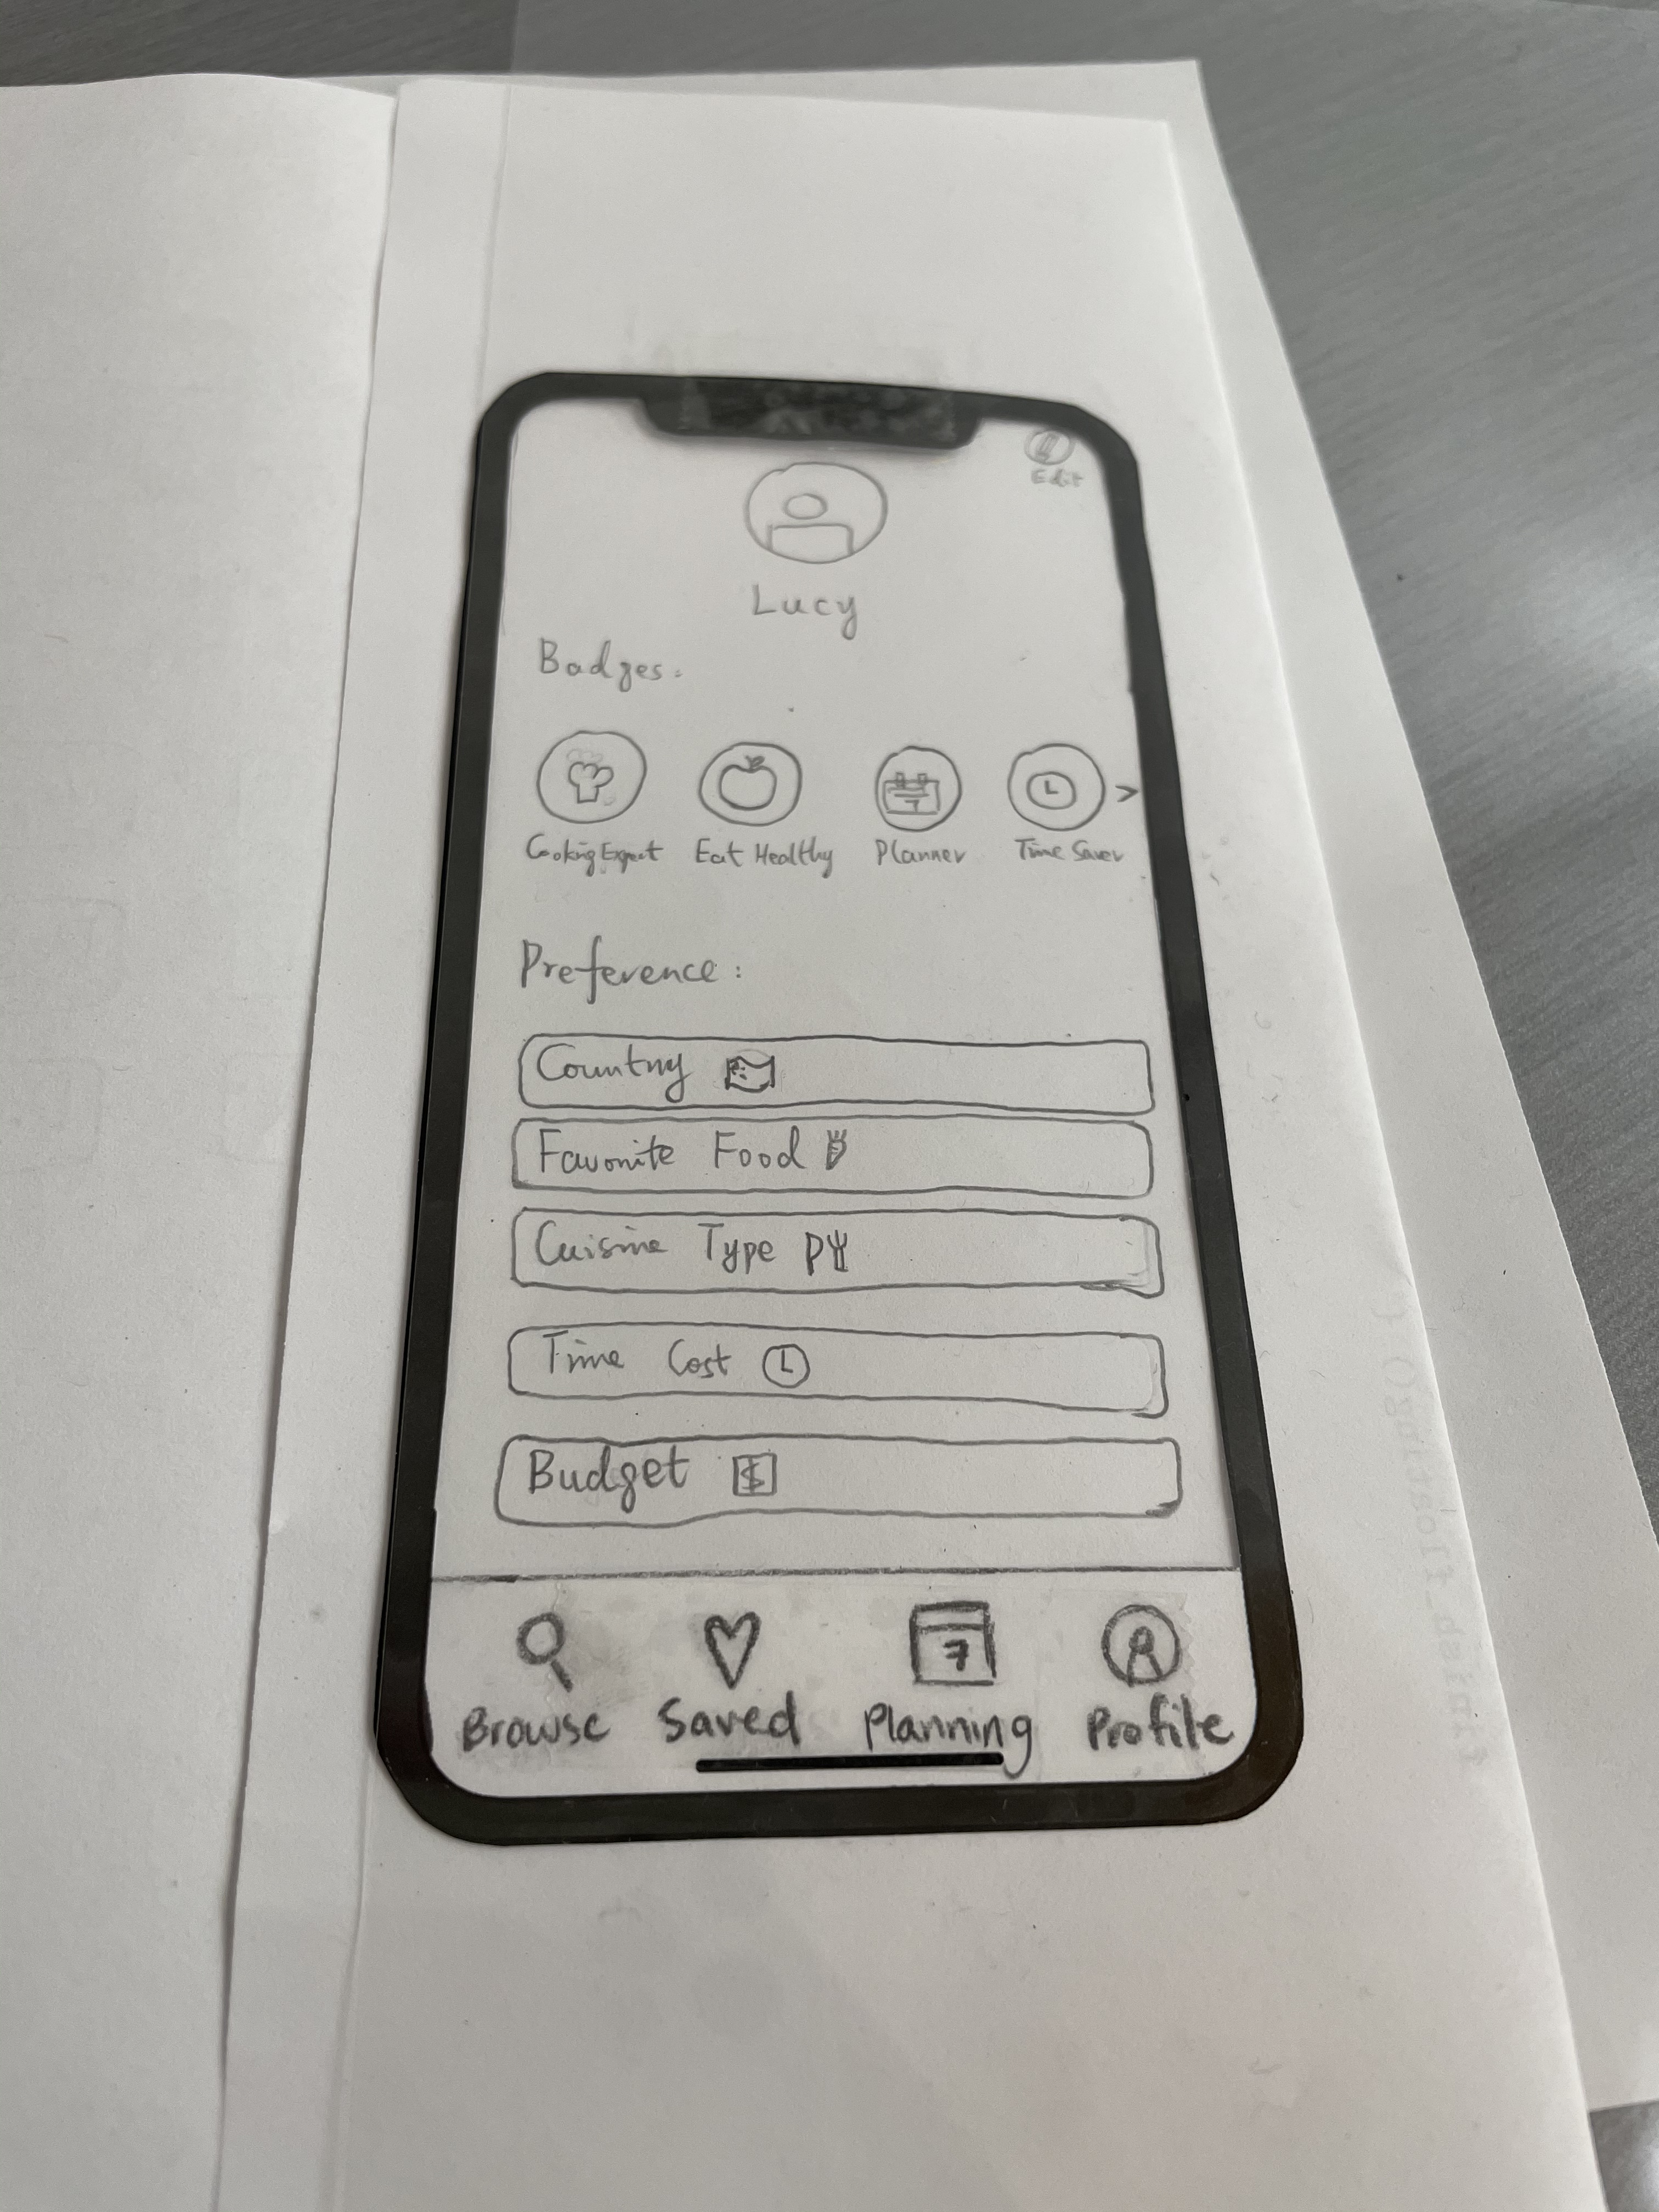 Edit
Lucy
Badges:
Cooking Expert Eat Healthy Planner Time Saver >
Preference:
Country
Favorite Food
Cuisine Type
Time Cost
Budget $
7
Browse Saved Planning Profile